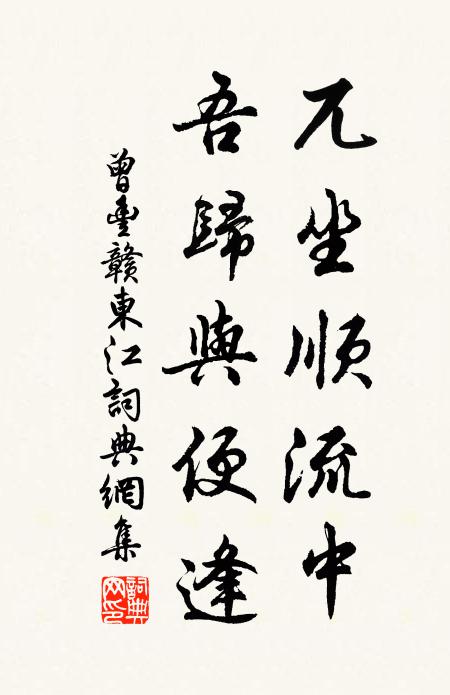 兀坐順流中
吾歸與便逢
曾豐贛東江詞典網集
詞典網印